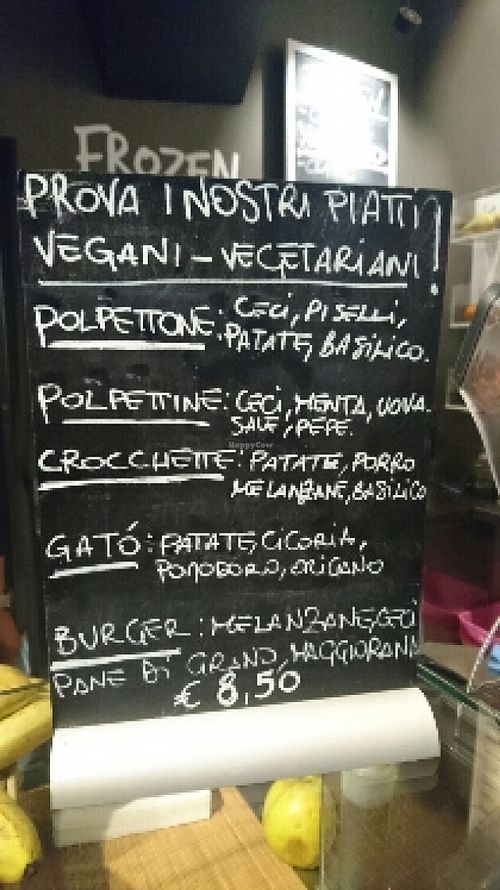 FROZEN
PROVA I NOSTRI PIATTI
VEGANI - VEGETARIANI!
POLPETTONE: CECI, PISELLI,
PATATE, BASILICO.
POLPETTINE: CECI, MENTA, UOVA.
SALE, PEPE.
HappyCow
CROCCHETTE: PATATE, PORRO
MELANZANE, BASILICO
GATÓ: PATATE, CICORIA,
POMODORO, ORIGANO
BURGER: MELANZANE, CECI
PANE DI GRANO, MAGGIORANA
€ 8,50